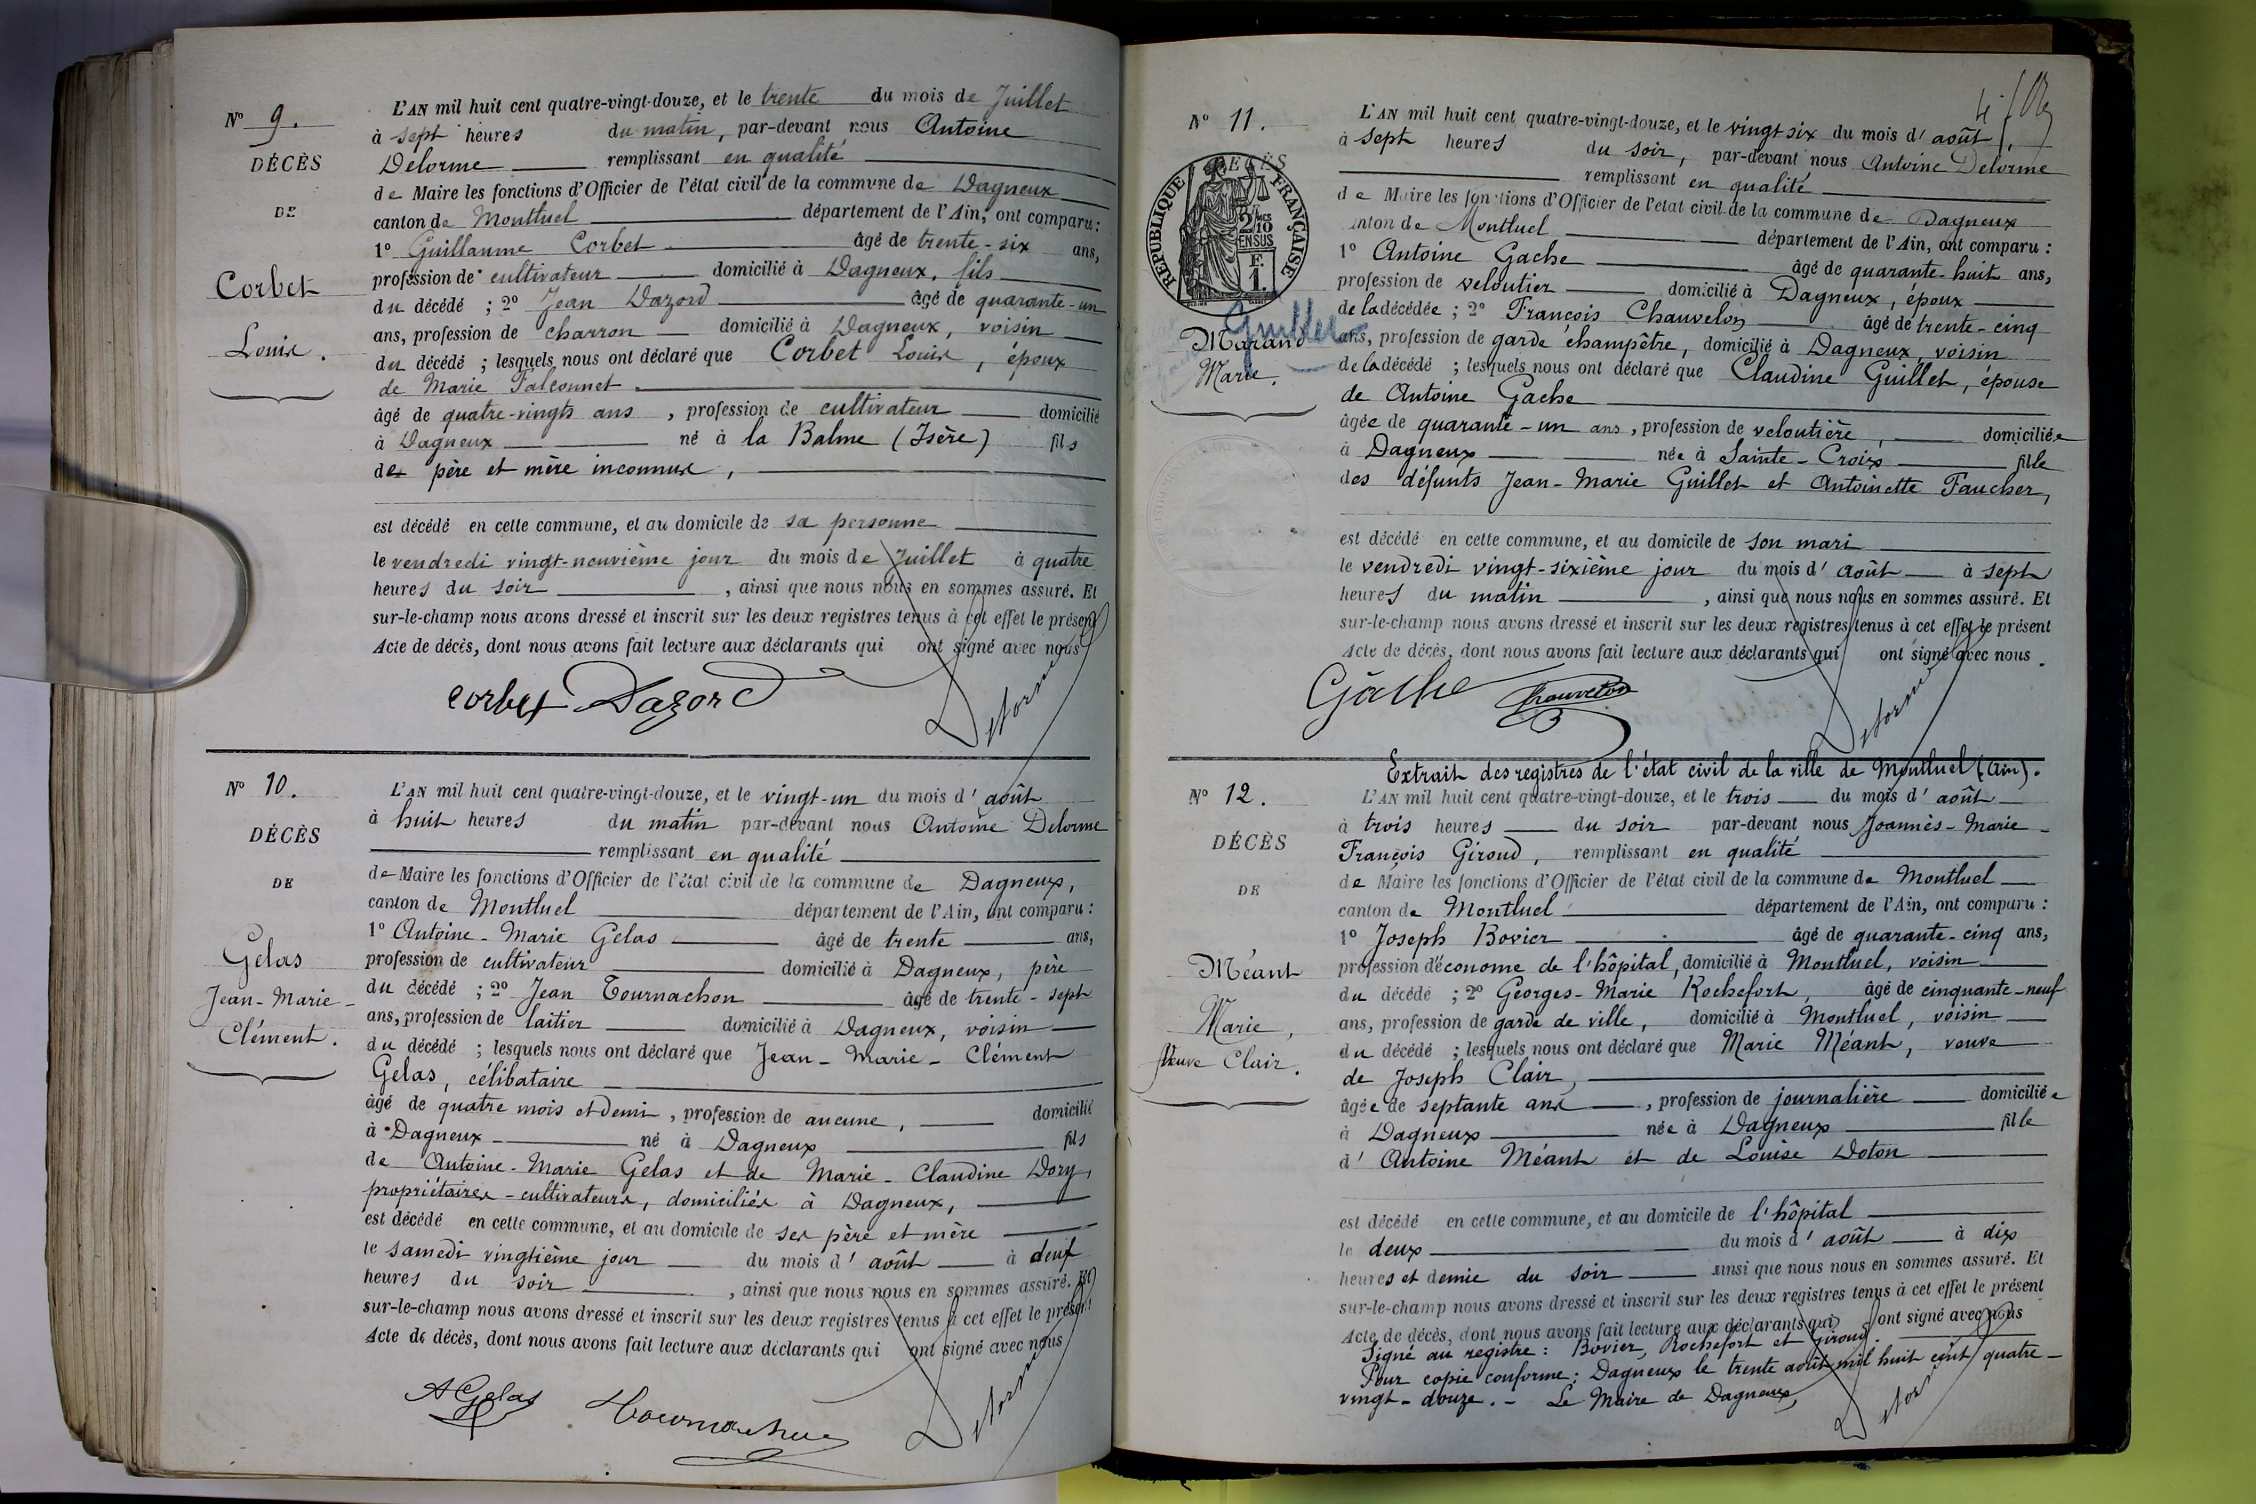 N° 9.
DÉCÈS
DE
Corbet
Louis.
L'AN mil huit cent quatre-vingt-douze, et le trente du mois de Juillet
à sept heures du matin, par-devant nous Antoine
Delorme remplissant en qualité
de Maire les fonctions d'Officier de l'état civil de la commune de Dagneux
canton de Montluel département de l'Ain, ont comparu :
1° Guillaume Corbet âgé de trente-six ans,
profession de cultivateur domicilié à Dagneux, fils
du décédé ; 2° Jean Dazord âgé de quarante-un
ans, profession de charron domicilié à Dagneux, voisin
du décédé ; lesquels nous ont déclaré que Corbet Louis, époux
de Marie Falconnet
âgé de quatre-vingts ans, profession de cultivateur domicilié
à Dagneux né à la Balme (Isère) fils
de père et mère inconnus,
est décédé en cette commune, et au domicile de sa personne
le vendredi vingt-neuvième jour du mois de Juillet à quatre
heures du soir, ainsi que nous nous en sommes assuré. Et
sur-le-champ nous avons dressé et inscrit sur les deux registres tenus à cet effet le présent
Acte de décès, dont nous avons fait lecture aux déclarants qui ont signé avec nous
corbet Dazord Delorme
N° 10.
DÉCÈS
DE
Gelas
Jean-Marie-
Clément.
L'AN mil huit cent quatre-vingt-douze, et le vingt-un du mois d'août
à huit heures du matin par-devant nous Antoine Delorme
remplissant en qualité
de Maire les fonctions d'Officier de l'état civil de la commune de Dagneux,
canton de Montluel département de l'Ain, ont comparu :
1° Antoine-Marie Gelas âgé de trente ans,
profession de cultivateur domicilié à Dagneux, père
du décédé ; 2° Jean Tournachon âgé de trente-sept
ans, profession de laitier domicilié à Dagneux, voisin
du décédé ; lesquels nous ont déclaré que Jean-Marie-Clément
Gelas, célibataire
âgé de quatre mois et demi, profession de aucune, domicilié
à Dagneux né à Dagneux fils
de Antoine-Marie Gelas et de Marie-Claudine Dory,
propriétaires-cultivateurs, domiciliés à Dagneux,
est décédé en cette commune, et au domicile de ses père et mère
le samedi vingtième jour du mois d'août à
heures du soir, ainsi que nous nous en sommes assuré. Et
sur-le-champ nous avons dressé et inscrit sur les deux registres tenus à cet effet le présent
Acte de décès, dont nous avons fait lecture aux déclarants qui ont signé avec nous
A Gelas Tournachon Delorme
N° 11.
RÉPUBLIQUE FRANÇAISE
2/10 EN SUS
F. 1.
Guillet
Marand
Marie.
L'AN mil huit cent quatre-vingt-douze, et le vingt six du mois d'août,
à sept heures du soir, par-devant nous Antoine Delorme
remplissant en qualité
de Maire les fonctions d'Officier de l'état civil de la commune de Dagneux
canton de Montluel département de l'Ain, ont comparu :
1° Antoine Gache âgé de quarante-huit ans,
profession de veloutier domicilié à Dagneux, époux
de la décédée ; 2° François Chauvelon âgé de trente-cinq
ans, profession de garde champêtre, domicilié à Dagneux, voisin
de la décédé ; lesquels nous ont déclaré que Claudine Guillet, épouse
de Antoine Gache
âgée de quarante-un ans, profession de veloutière, domiciliée
à Dagneux née à Sainte-Croix fille
des défunts Jean-Marie Guillet et Antoinette Faucher,
est décédé en cette commune, et au domicile de son mari
le vendredi vingt-sixième jour du mois d'août à sept
heures du matin, ainsi que nous nous en sommes assuré. Et
sur-le-champ nous avons dressé et inscrit sur les deux registres tenus à cet effet le présent
Acte de décès, dont nous avons fait lecture aux déclarants qui ont signé avec nous.
Gâche Chauvelon Delorme
Extrait des registres de l'état civil de la ville de Montluel (Ain).
N° 12.
DÉCÈS
DE
Méant
Marie,
Veuve Clair.
L'AN mil huit cent quatre-vingt-douze, et le trois du mois d'août
à trois heures du soir par-devant nous Joannès-Marie-
François Giroud, remplissant en qualité
de Maire les fonctions d'Officier de l'état civil de la commune de Montluel
canton de Montluel département de l'Ain, ont comparu :
1° Joseph Bovier âgé de quarante-cinq ans,
profession d'économe de l'hôpital, domicilié à Montluel, voisin
du décédé ; 2° Georges-Marie Rochefort, âgé de cinquante-neuf
ans, profession de garde de ville, domicilié à Montluel, voisin
du décédé ; lesquels nous ont déclaré que Marie Méant, veuve
de Joseph Clair,
âgée de septante ans, profession de journalière domiciliée
à Dagneux née à Dagneux fille
d'Antoine Méant et de Louise Doton
est décédé en cette commune, et au domicile de l'hôpital
le deux du mois d'août à dix
heures et demie du soir ainsi que nous nous en sommes assuré. Et
sur-le-champ nous avons dressé et inscrit sur les deux registres tenus à cet effet le présent
Acte de décès, dont nous avons fait lecture aux déclarants qui ont signé avec nous
Signé au registre : Bovier, Rochefort et Giroud.
Pour copie conforme : Dagneux le trente août mil huit cent quatre-
vingt-douze.- Le Maire de Dagneux,
Delorme